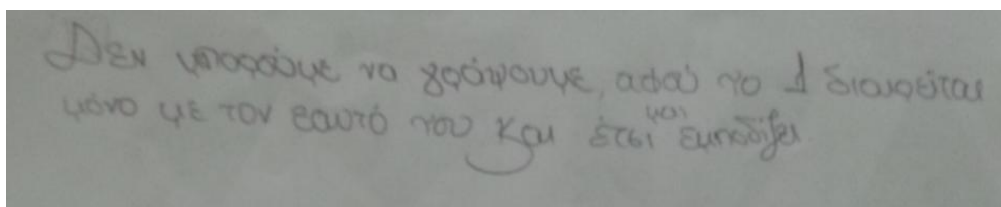 Δεν μπορούμε να γράψουμε, αφού το 1 διαιρείται
μόνο με τον εαυτό του και έτσι μας εμποδίζει.